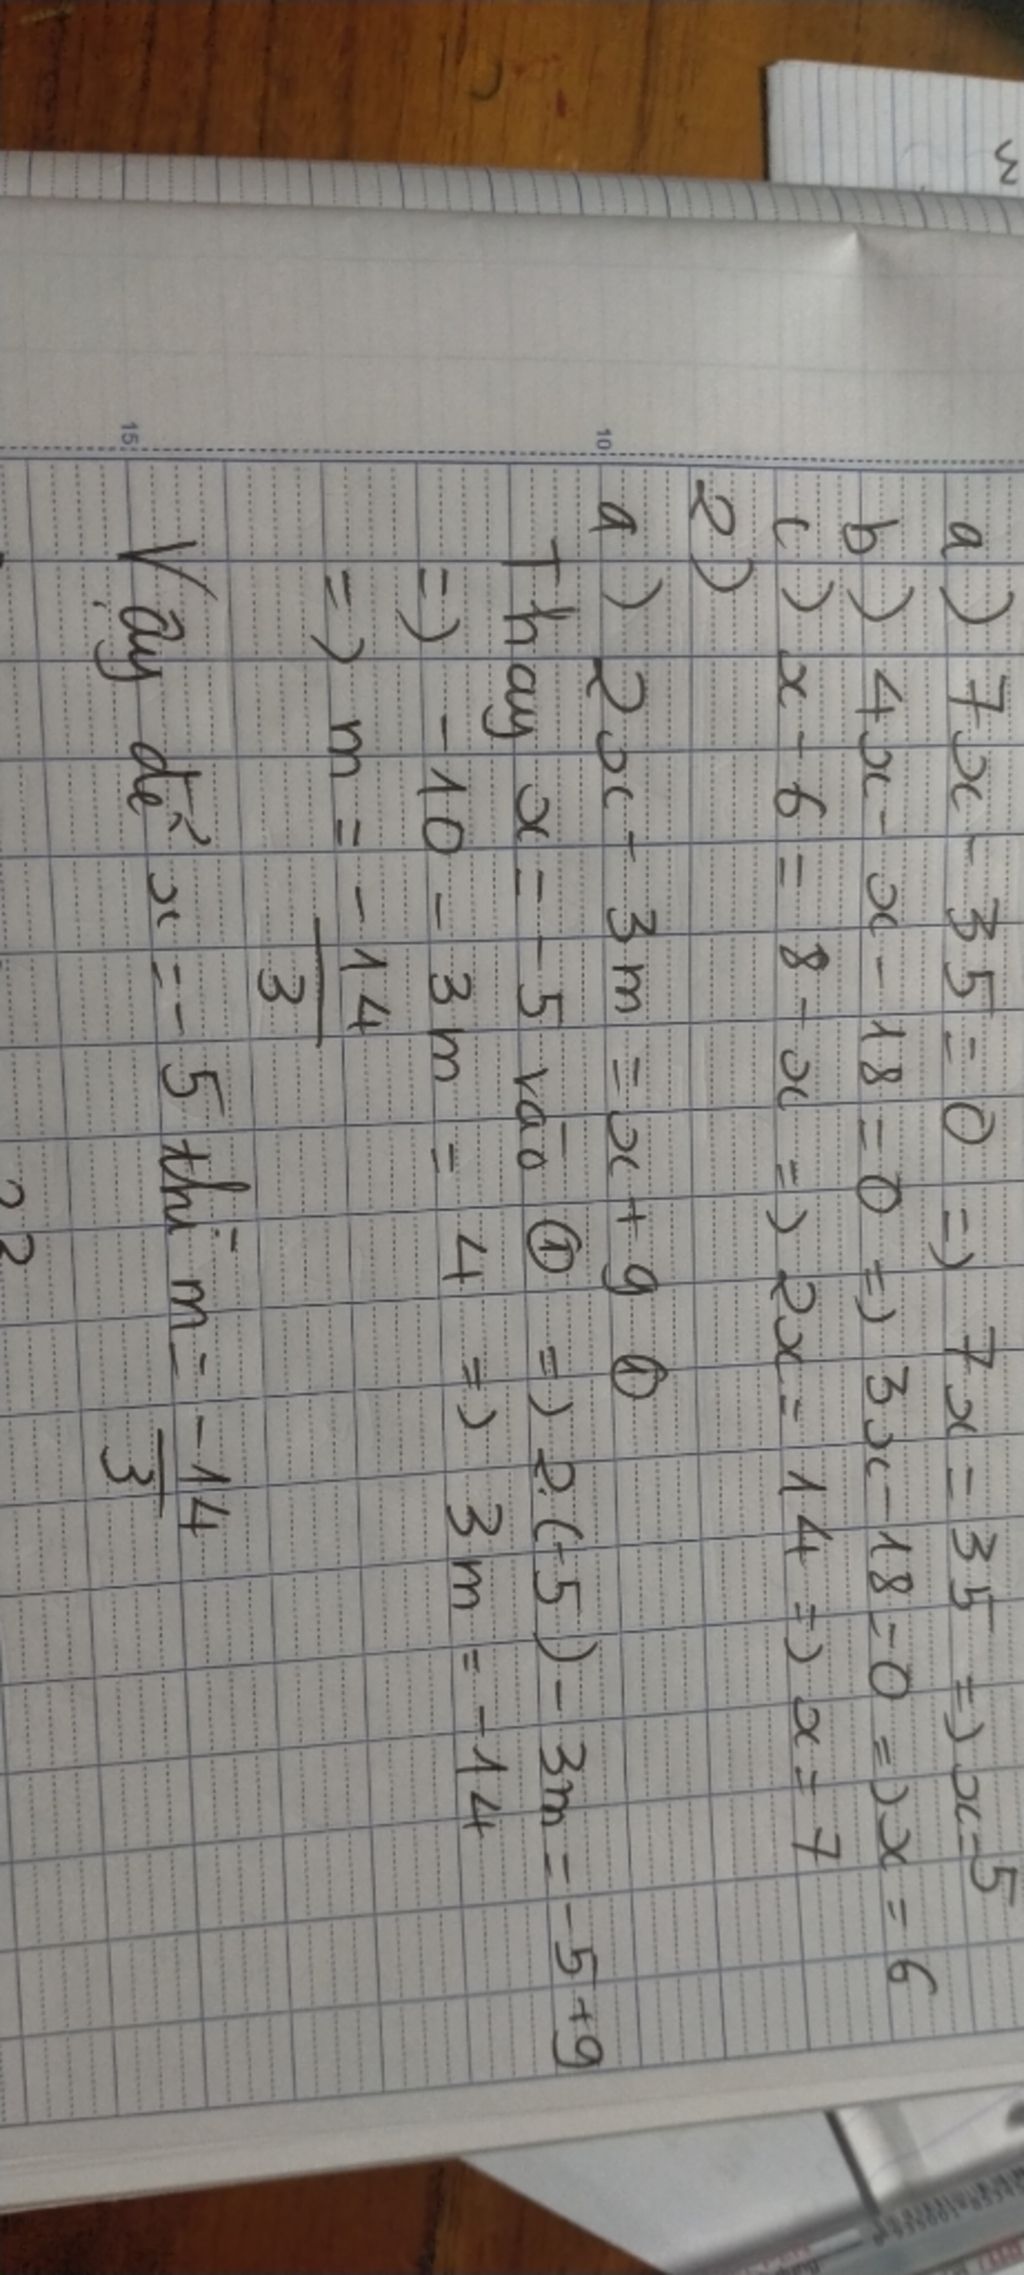 a) 7x - 35 = 0 => 7x = 35 => x = 5
b) 4x - x - 18 = 0 => 3x - 18 = 0 => x = 6
c) x - 6 = 8 - x => 2x = 14 => x = 7
2)
10
a) 2x - 3m = x + 9 ①
Thay x = -5 vào ① => 2.(-5) - 3m = -5 + 9
=> -10 - 3m = 4 => 3m = -14
=> m = -14/3
15
Vậy để x = -5 thì m = -14/3